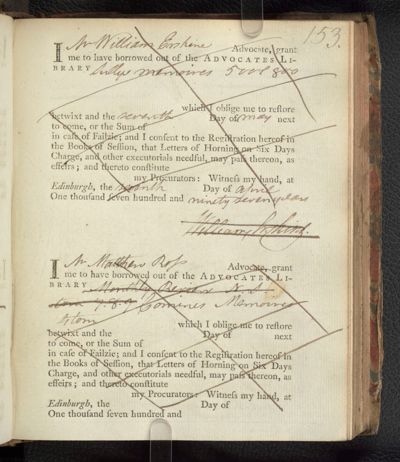 153.
I Mr William Erskine Advocate, grant
me to have borrowed out of the ADVOCATES LI-
BRARY Sullys memoires 5 vol 8vo
which I oblige me to reſtore
betwixt and the seventh Day of may next
to come, or the Sum of
in caſe of Failzie; and I conſent to the Regiſtration hereof in
the Books of Seſſion, that Letters of Horning on Six Days
Charge, and other executorials needful, may paſs thereon, as
effeirs; and thereto conſtitute
my Procurators: Witneſs my hand, at
Edinburgh, the seventh Day of april
One thouſand ſeven hundred and ninety seven years
William Erskine.
I Mr Matthew Roſs Advocate, grant
me to have borrowed out of the ADVOCATES LI-
BRARY Monthly Review N. S.
Comines Memoires
which I oblige me to reſtore
betwixt and the Day of next
to come, or the Sum of
in caſe of Failzie; and I conſent to the Regiſtration hereof in
the Books of Seſſion, that Letters of Horning on Six Days
Charge, and other executorials needful, may paſs thereon, as
effeirs; and thereto conſtitute
my Procurators: Witneſs my hand, at
Edinburgh, the Day of
One thouſand ſeven hundred and